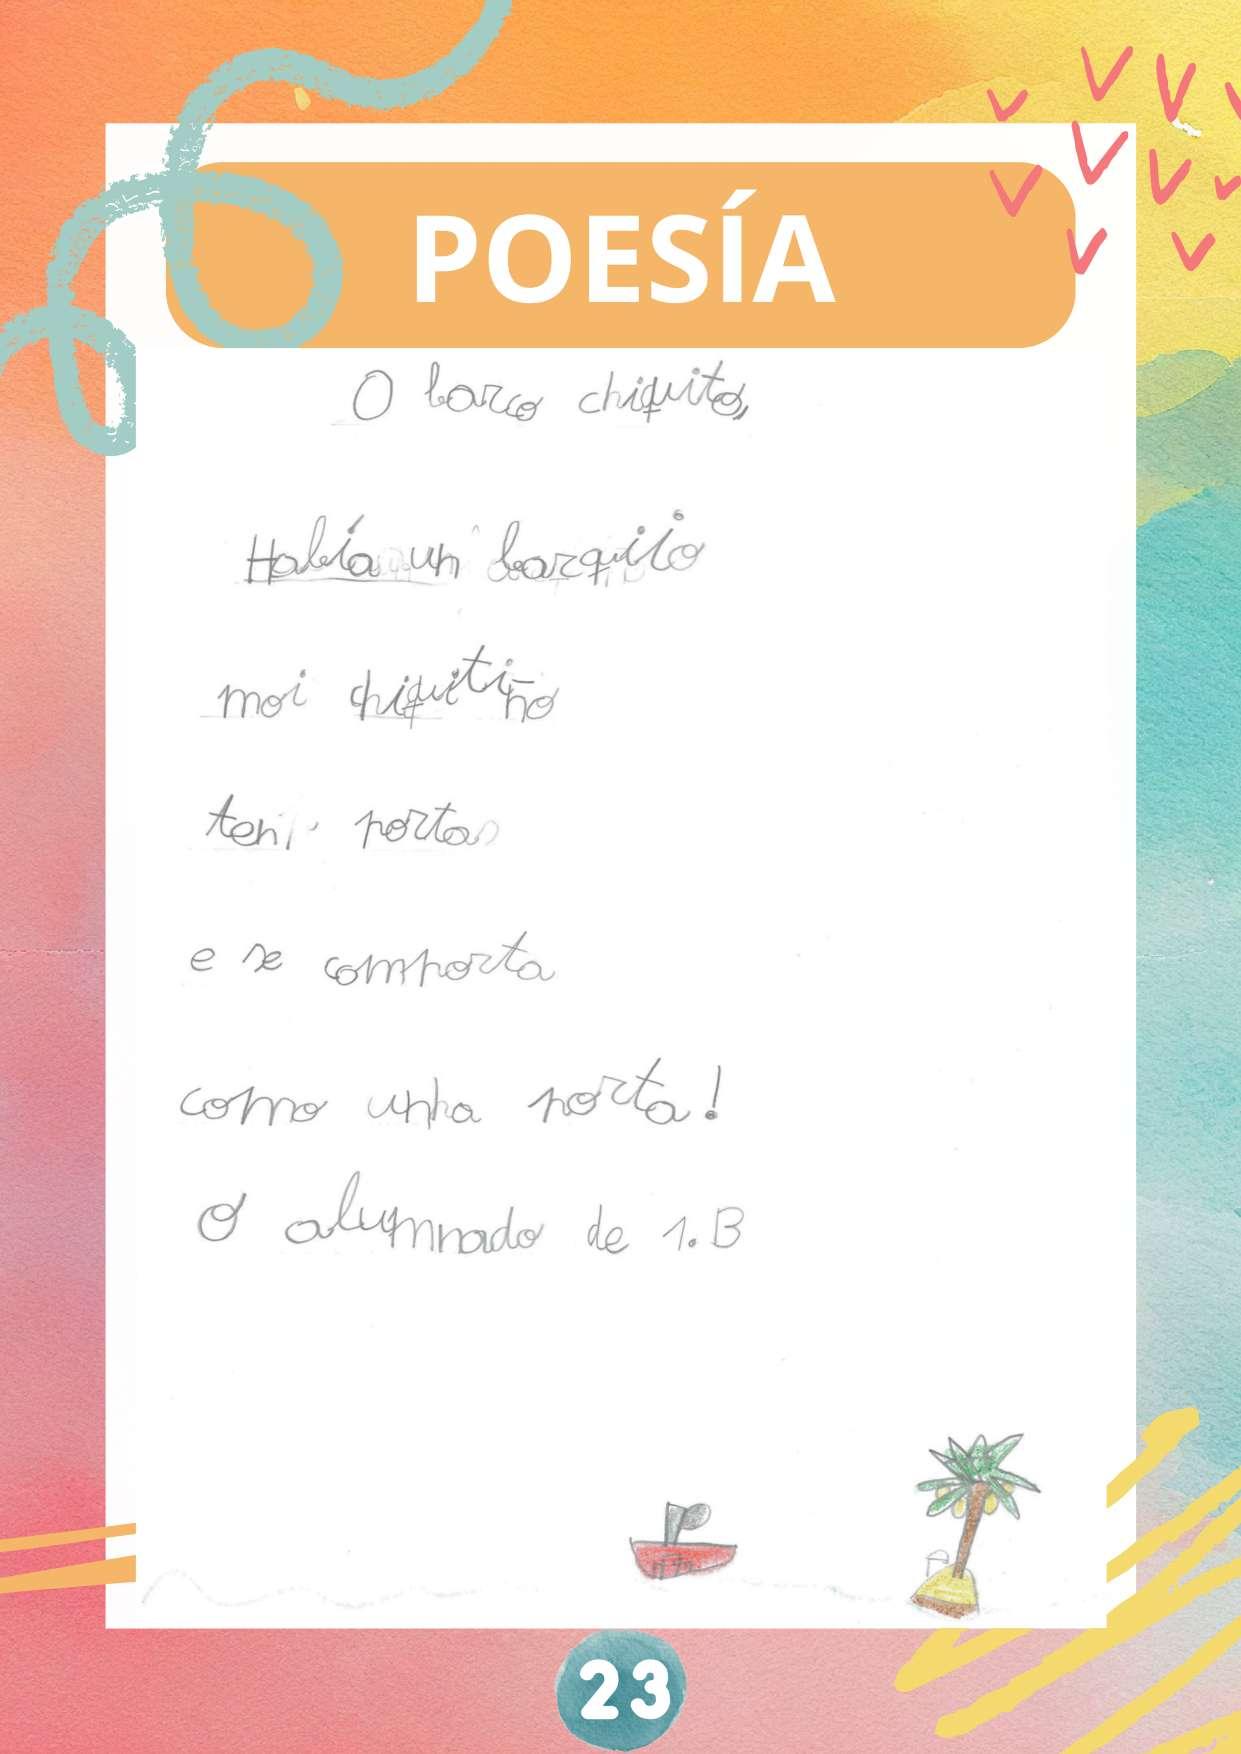 POESÍA
O barco chiquito,
Había un barquiio
moi chiquitiño
ten portas
e se comporta
como unha porta!
O alumnado de 1.B
23